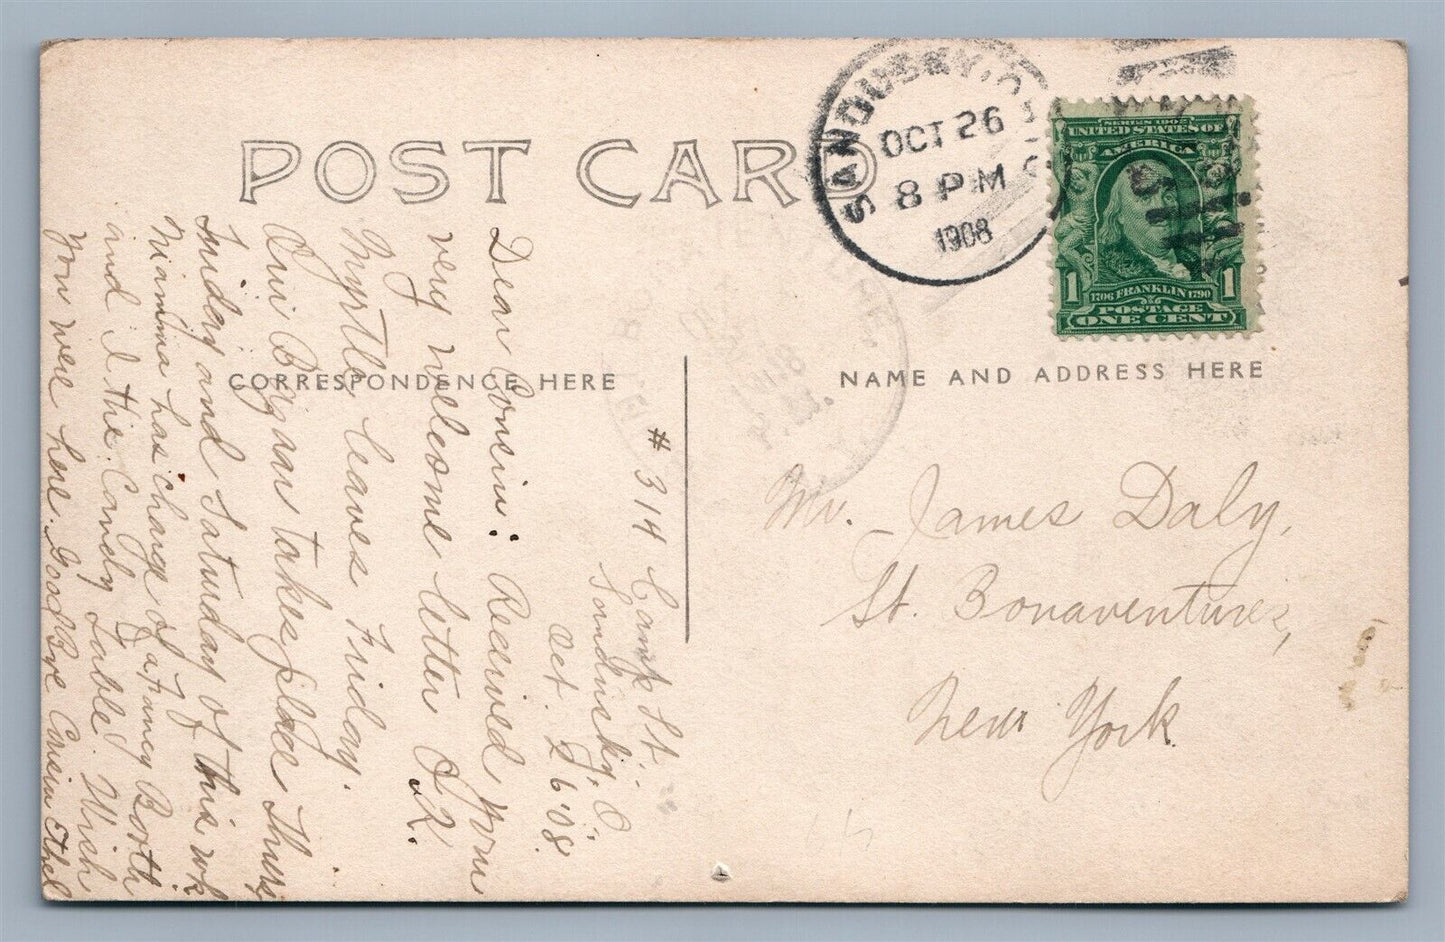 POST CARD
SANDUSKY, O.
OCT 26
8 PM
1908
SERIES 1902
UNITED STATES OF
AMERICA
1 1
1706 FRANKLIN 1790
POSTAGE
ONE CENT
CORRESPONDENCE HERE
NAME AND ADDRESS HERE
# 314 Camp St.
Sandusky, O
Oct. 26 '08.
Dear Cousin: Received your
very welcome letter O.K.
Myrtle leaves Friday.
Our Bazaar takes place Thurs
Friday and Saturday of this wk
Mamma has charge of a Fancy Booth
and I the Candy Table. Wish
you were here. Good Bye Cousin Ethel
Mr. James Daly,
St. Bonaventure,
New York.